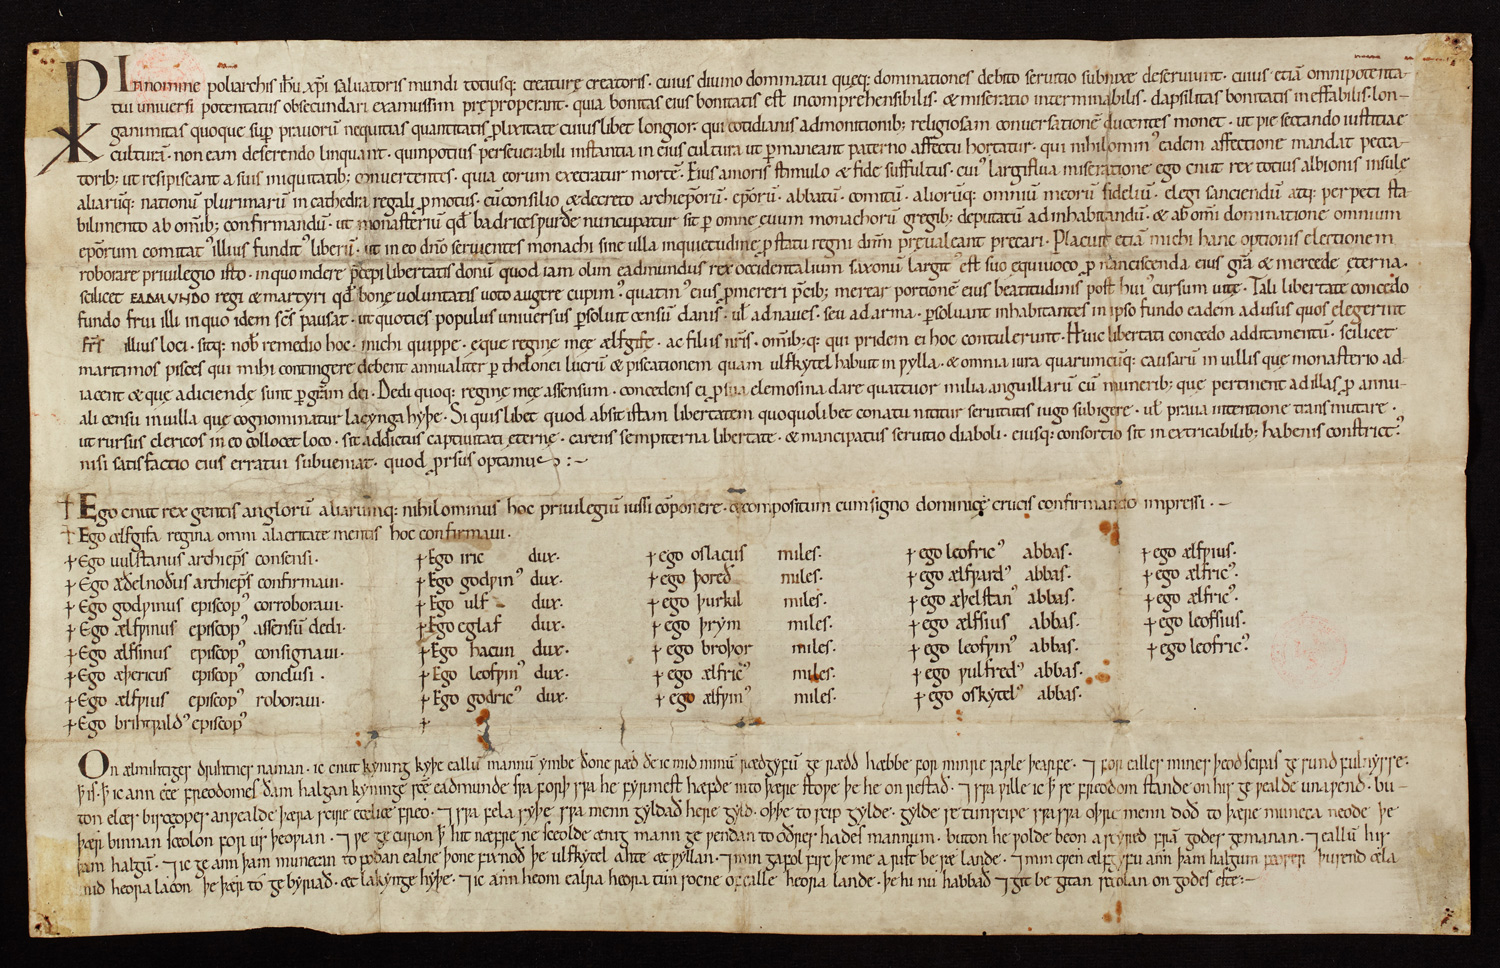 In nomine poliarchis ih̄u xp̄i saluatoris mundi totiusq; creaturę creatoris · cuius diuino dominatui quęq; dominationes debito seruitio subnixe deseruiunt · cuius etiā omnipotenta-
tui uniuersi potentatus obsecundari examussim pręproperant · quia bonitas eius bonitatis est incomprehensibilis · & miseratio interminabilis · dapsilitas bonitatis ineffabilis · lon-
ganimitas quoque sup prauorū nequitias quantitatis plixitate cuiuslibet longior · qui cotidianis admonitionib; religiosam conuersationē ducentes monet · ut pie sectando iustitiae
culturā · non eam deserendo linquant · quinpotius perseuerabili instantia in eius cultura ut pmaneant paterno affectu hortatur · qui nihilomin' eadem affectione mandat pecca-
torib; ut resipiscant a suis iniquitatib; conuertentes · quia eorum execratur mortē · Eius amoris stimulo & fide suffultus · cui' largiflua miseratione ego cnut rex totius albionis insulę
aliarūq; nationū plurimarū in cathedra regali pmotus · cū consilio & decreto archiep̄orū · ep̄orū · abbatū · comitū · aliorūq; omniū meorū fideliū · elegi sanciendū atq; perpeti sta-
bilimento ab om̄ib; confirmandū · ut monasteriū qd̄ badricespurde nuncupatur sit p omne euum monachorū gregib; deputatū ad inhabitandū · & ab om̄i dominatione omnium
ep̄orum comitat' illius fundit' liberū · ut in eo dn̄o seruientes monachi sine ulla inquietudine p statu regni dn̄m pręualeant precari · Placuit etiā michi hanc optionis electionem
roborare priuilegio isto · in quo indere p̄cepi libertatis donū quod iam olim eadmundus rex occidentalium saxonū largit' est suo ęquiuoco p nanciscenda eius gr̄a & mercede ęterna ·
scilicet EADMUNDO regi & martyri qd̄ bonę uoluntatis uoto augere cupim' · quatin' eius pmereri p̄cib; merear portionē eius beatitudinis post hui' cursum uitę · Tali libertate concedo
fundo frui illi in quo idem sc̄s pausat · ut quoties populus uniuersus psoluit censū danis · ul' ad naues · seu ad arma · psoluant inhabitantes in ipso fundo eadem ad usus quos elegerint
fr̄s illius loci · sitq; nob' remedio hoc · michi quippe · ęque reginę meę ælfgifę · ac filiis nr̄is · om̄ib;q; qui pridem ei hoc contulerunt · Huic libertati concedo additamentū · scilicet
maritimos pisces qui mihi contingere debent annualiter p thelonei lucrū & piscationem quam ulfkytel habuit in pylla · & omnia iura quarumcūq; causarū in uillis quę monasterio ad-
iacent & quę adiciendę sunt p gr̄am dei · Dedi quoq; reginę meę assensum · concedens ei p sua elemosina dare quattuor milia anguillarū cū munerib; que pertinent ad illas p annu-
ali censu in uilla que cognominatur lacyngahyþe · Si quislibet quod absit istam libertatem quoquolibet conatu nititur seruitutis iugo subigere · ul' praua intentione transmutare ·
ut rursus clericos in eo collocet loco · sit addictus captiuitati ęternę · carens sempiterna libertate · & mancipatus seruitio diaboli · eiusq; consortio sit inextricabilib; habenis constrict'
nisi satisfactio eius erratui subueniat · quod prsus optamus :~
† Ego cnut rex gentis anglorū aliarumq; nihilominus hoc priuilegiū iussi cōponere · & compositum cum signo dominicę crucis confirmando impressi · ~
† Ego ælfgifa regina omni alacritate mentis hoc confirmaui ·
† Ego vulstanus archiep̄s consensi · † Ego iric dux · † ego oslacus miles · † ego leofric' abbas · † ego ælfƿius ·
† Ego æðelnoðus archiep̄s confirmaui · † Ego godƿin' dux · † ego þored miles · † ego ælfƿard' abbas · † ego ælfric' ·
† Ego godƿinus episcop' corroboraui · † Ego ulf dux · † ego þurkil miles · † ego æþelstan' abbas · † ego ælfric' ·
† Ego ælfƿinus episcop' assensū dedi · † Ego eglaf dux · † ego þrym miles · † ego ælfsius abbas · † ego leofsius ·
† Ego ælfsinus episcop' consignaui · † Ego hacun dux · † ego broþor miles · † ego leofƿin' abbas · † ego leofric' ·
† Ego æþericus episcop' conclusi · † Ego leofƿin' dux · † ego ælfric' miles · † ego ƿulfred' abbas ·
† Ego ælfƿius episcop' roboraui · † Ego godric' dux · † ego ælfƿin' miles · † ego oskytel' abbas ·
† Ego brihtƿald' episcop' †
On ælmihtiges drihtnes naman · ic cnut kyning kyþe eallū mannū ymbe ðone ræd ðe ic mid minū rædgyfū geræd hæbbe for minre saƿle þearfe · ⁊ for ealles mines þeodscipas gesund fulnysse ·
þ is · þ ic ann éce freodomes ðam halgan kyninge sc̄e eadmunde sƿa forþ sƿa he fyrmest hæfde into þære stoƿe þe he on restað · ⁊ ic ƿille þ se freodom stande on his geƿealde unaƿend · bu-
ton elces biscopes anƿealde þæra scire ecelice freo · ⁊ sƿa fela syþe sƿa menn gyldað here gyld · oþþe to scip gylde · gylde se tunscipe sƿa sƿa oþre menn doð to þære muneca neode þe
þær binnan sceolon for us þeoƿian · ⁊ ƿe gecuron þ hit næfre ne sceolde ænig mann geƿendan to oðres hades mannum · buton he ƿolde beon ascyred frā godes gemanan · ⁊ eallū his
þam halgū · ⁊ ic geann þam munecan to fodan ealne þone fixnoð þe ulfkytel ahte æt ƿyllan · ⁊ min gafol fisc þe me arist be sæ lande · ⁊ min cƿen ælfgyfu ann þam halgum þusend æla
mid heora lacon þe þær to gebyriað · æt lakynge hyþe · ⁊ ic ann heom ealra heora tun socne ofealle heora lande · þe hi nu habbað ⁊ git begitan sceolan on godes este :~